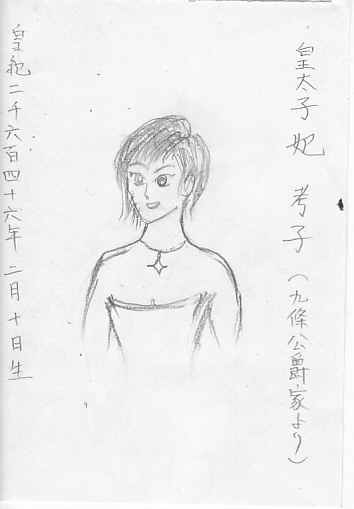 皇太子妃 考子（九條公爵家より）
皇紀二千六百四十六年 二月十日生